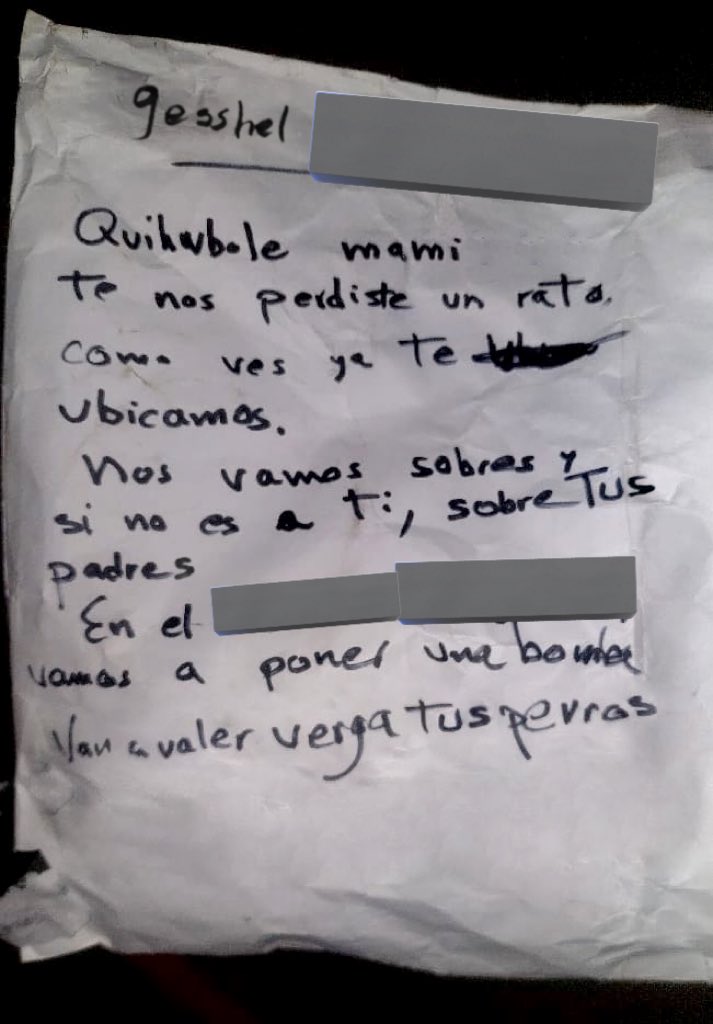 gesshel
Quihubole mami
te nos perdiste un rato.
como ves ya te
ubicamos.
Nos vamos sobres y
si no es a ti, sobre Tus
padres
En el
vamos a poner una bomba
Van a valer verga Tus perros